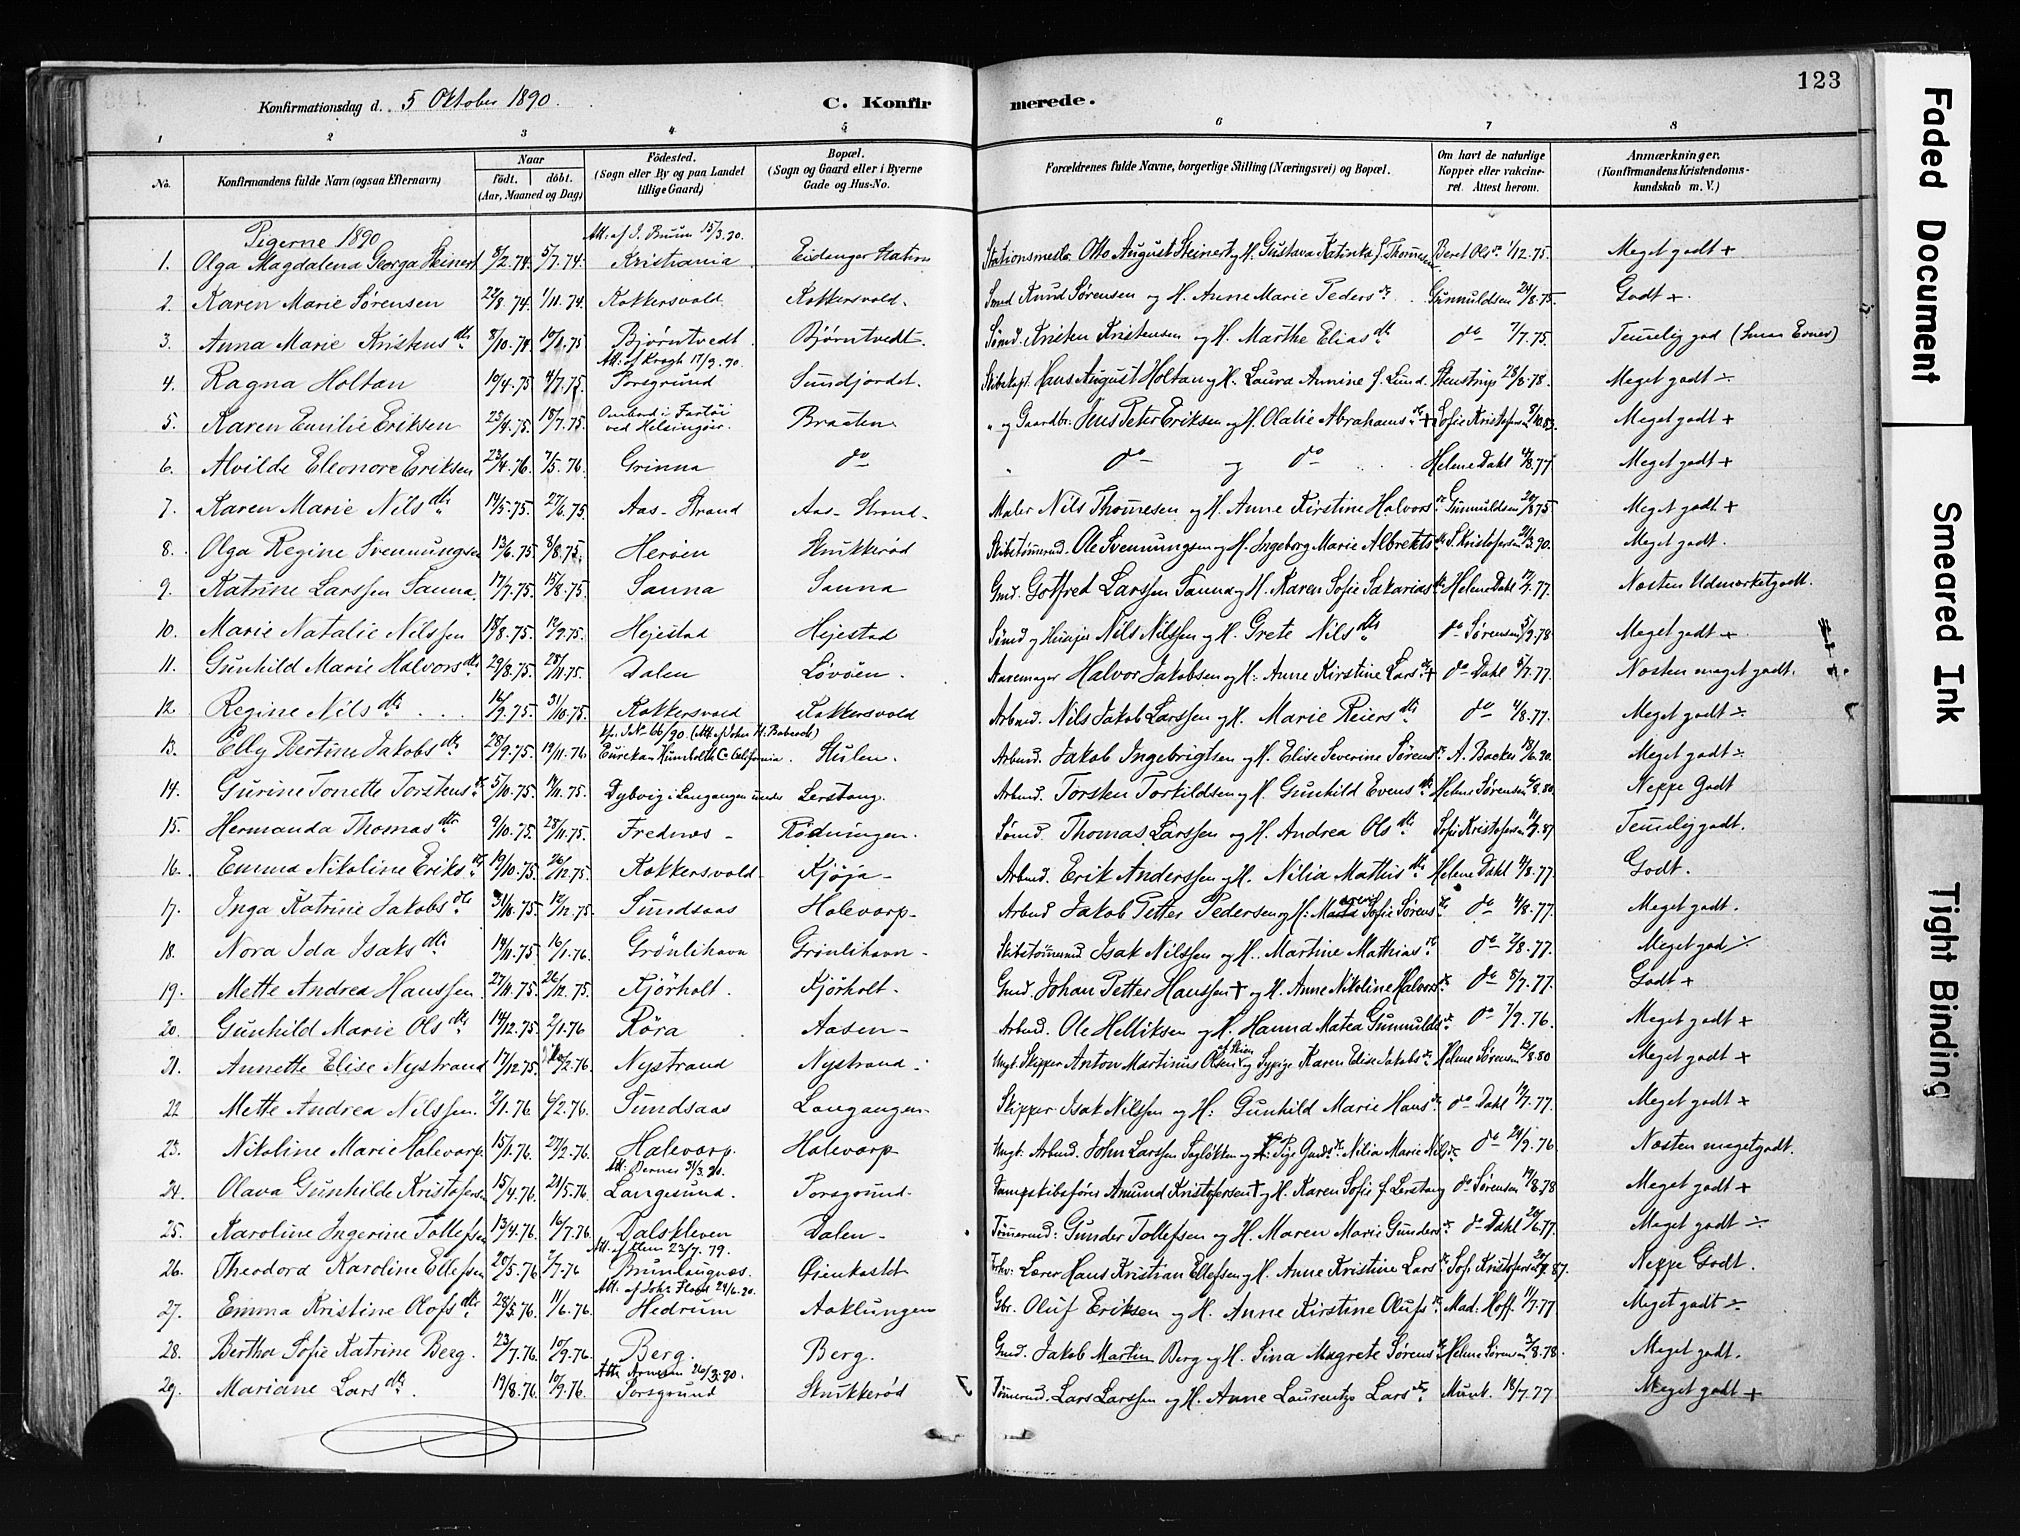 123
Konfirmationsdag d. 5 Oktober 1890.
C. Konfirmerede.
1 2 3 4 5 6 7 8
No.
Konfirmandens fulde Navn (ogsaa Efternavn)
Naar
født. døbt.
(Aar, Maaned og Dag)
Fødested.
(Sogn eller By og paa Landet
tillige Gaard)
Bopæl.
(Sogn og Gaard eller i Byerne
Gade og Hus-No.
Forældrenes fulde Navne, borgerlige Stilling (Næringsvei) og Bopæl.
Om havt de naturlige
Kopper eller vakcineret. Attest herom.
Anmærkninger.
(Konfirmandens Kristendomskundskab m. V.)
Pigerne 1890
Att. af J. Bruun 15/3.90.
1. Olga Magdalena Georga Steinert 8/2.74. 5/7.74. Kristiania Eidanger Station Stationsmester Otto August Steinert og H. Gustava Katinka f. Thommesen Beret Olsdr 1/12.75. Meget godt +
2. Karen Marie Sørensen 27/8 74. 1/11.74. Kokkersvold Kokkersvold. Smd Knud Sørensen og H. Anne Marie Pedersdr Gunnuldsen 24/8.75. Godt +.
3. Anna Marie Kristensdtr 8/10.74. 10/1.75 Bjørntvedt Bjørntvedt. Sømd. Kristen Kristensen og H. Marthe Eliasdtr do 7/7.75. Temelig god (Smaa Evner)
Att. af Krogh 17/9.90
4. Ragna Holtan 10/4.75 4/7.75. Porsgrund Sundjordet. Skibskapt. Hans August Holtan og H. Laura Annine f. Lund. Stenstrup 28/8.78. Meget godt ÷
5. Karen Emilie Eriksen 25/4.75. 18/7.75. Ombord i Fartöi ved Helsingør. Braaten " og Gaardbr. Jens Peter Eriksen og H. Olalie Abrahamsdr + Sofie Kristofersen 8/10.89. Meget godt +
6. Alvilde Eleonore Eriksen 23/4.76. 7/5.76. Grinna do do og do Helene Dahl 4/8.77 Meget godt +
7. Karen Marie Nilsdtr 14/5.75. 27/6.75. Aas-Strand Aas-Strand- Maler Nils Thomesen og H. Anne Kirstine Halvorsdr Gunnuldsen 20/8 75 Meget godt +
8. Olga Regine Svennungsen 13/6.75. 8/8.75. Herøen Skrukkerød Skibstømmd. Ole Svennungsen og H. Ingeborg Marie Albrektsdr S. Kristofersen 21/3.90. Meget godt.
9. Katrine Larssen Sanna 17/7.75. 15/8.75. Sanna Sanna Gmd. Gotfred Larssen Sanna og H. Karen Sofie Sakariasdr Helene Dahl 17/7.77. Næsten Udmerketgodt.
10. Marie Natalie Nilssen 18/8.75. 12/9.75. Hejestad Hejestad Sømd og Husejer Nils Nilssen og H. Grete Nilsdtr do Sørensen 5/9.78 Meget godt +
11. Gunhild Marie Halvorsdtr 29/8.75. 28/11.75. Dalen Løvöen. Aaremager Halvor Jakobsen og H. Anne Kirstine Larsdr + do Dahl 5/7.77. Næsten meget godt.
12. Regine Nilsdtr 16/9.75. 31/10.75. Kokkersvold Kokkersvold Arbmd. Nils Jakob Larssen og H. Marie Reiersdtr do 4/8.77. Meget godt ÷
13. Elly Bertine Jakobsdtr 28/9.75. 19/11.76. Eureka Humboldt Co California. Stulen. Arbmd. Jakob Ingebrigtsen og H. Elise Severine Sørensdr A. Backer 18/6.90. Meget godt ÷
14. Gurine Tonette Torstensdr 5/10.75. 14/11.75. Dybvig i Langangen under Lerstang. Arbmd. Torsten Torkildsen og H. Gunhild Evensdtr Helene Sørensen 6/8.80 Neppe Godt
15. Hermanda Thomasdtr 9/10.75. 28/11.75. Frednes- Rødningen. Sømd. Thomas Larssen og H. Andrea Olsdtr Sofie Kristofersen 11/9.87 Temelig godt.
16. Emma Nikoline Eriksdtr 19/10.75. 26/12.75 Kokkersvold. Kjøja- Arbmd. Erik Anderssen og H. Nilia Mathisdtr Helene Dahl 4/8.77 Godt.
17. Inga Katrine Jakobsdtr 31/10.75. 12/12.75. Sundsaas Halevarp- Arbmd Jakob Petter Pedersen og H. Maren Sofie Sørensdr do 4/8.77. Meget godt.
18. Nora Ida Isaksdtr 14/11.75. 16/1.76. Grönlihavn Grönlihavn- Skibstømmermd Isak Nilssen og H. Martine Mathiasdr do 7/8.77. Meget god ÷
19. Mette Andrea Hanssen 27/11.75. 26/12.75. Kjörholt. Kjörholt- Gmd. Johan Petter Hanssen + og H. Anne Nikoline Halvorsdr do 8/7.77. Godt +
20. Gunhild Marie Olsdtr 14/12.75. 2/1.76 Röra Aasen- Arbmd. Ole Helliksen og H. Hanna Matea Gunnuldsdr do 7/9.76. Meget godt +
21. Annette Elise Nystrand 17/12.75. 20/2.76. Nystrand Nystrand. Ungk. Skipper Anton Martinus Olsen af Skien og Sypige Karen Elise Jakobsdr Helene Sørensen 12/8.80 Meget godt +
22 Mette Andrea Nilssen. 2/1.76 6/2.76. Sundsaas Langangen- Skipper Isak Nilssen og H: Gunhild Marie Hansdr do Dahl 17/7.77. Meget godt +
23. Nikoline Marie Halevarp. 15/1.76. 27/2.76. Halevarp. Halevarp Ungk: Arbmd. John Larssen Sagløkken og Pige Nilia Marie Nilsdr do 24/9.76 Næsten megetgodt.
Att. Bernes 31/3.90.
24. Olava Gunhilde Kristofersen 15/4.76. 21/5.76. Langesund. Porsgrund. Dampskibsfører Amund Kristofersen + og H. Karen Sofie f. Lerstang do Sørensen 19/8.78 Meget godt +
25. Karoline Ingerine Tollefsen 13/4.76. 16/7.76. Dalskleven Dalen- Tømermd: Gunder Tollefsen og H. Maren Marie Gundersdr do Dahl 20/6.77. Meget godt ÷
Att. af Elen 23/7.79.
26. Theodora Karoline Ellefsen 20/5.76 2/7.76 Brunlangnæs. Gjenkastet Fhv: Lærer Hans Kristian Ellefsen og H. Anne Kristine Larsdr Sofi Kristofersen 20/9.87. Neppe Godt.
27. Emma Kristine Olofsdtr 28/5.76. 11/6.76. Hedrum Aaklungen Gbr. Oluf Eriksen og H. Anne Kirstine Olufsdr Mad: Hoff. 11/7.77 Meget godt ÷
28. Bertha Sofie Katrine Berg. 23/7.76. 10/9.76. Berg. Berg. Gmd. Jakob Martin Berg og H. Sina Magrete Sørensdr Helene Sørensen 3/8.78. Meget godt.
29. Mariane Larsdtr. 19/8.76. 10/9.76. Porsgrund Skrukkerød Tømermd. Lars Larssen og H. Anne Laurentze Larsdtr Munk. 18/7.77. Meget godt +
Faded Document
Smeared Ink
Tight Binding